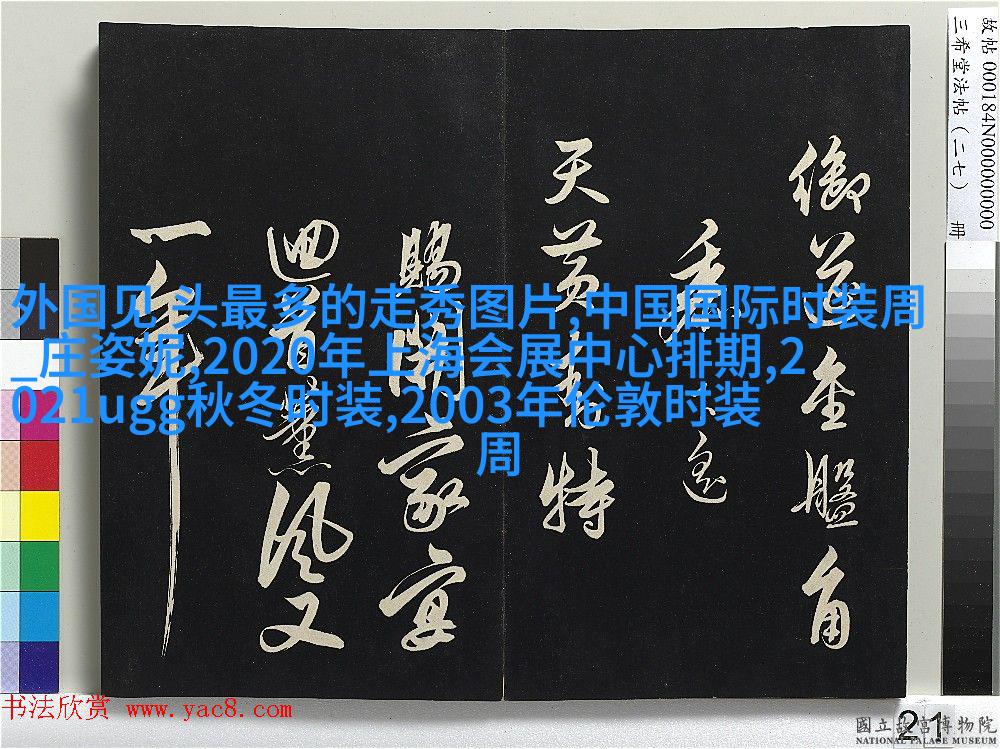 外国见 头最多的走秀图片,中国国际时装周
_庄姿妮,2020年上海会展中心排期,2
021ugg秋冬时装,2003年伦敦时装
周
天
特
賜
家
宴
風
又
一
年
角
故帖 000184N000000000
三希堂法帖(二七) 冊
书法欣赏 www.yac8.com
21
國立故宮博物院
NATIONAL PALACE MUSEUM